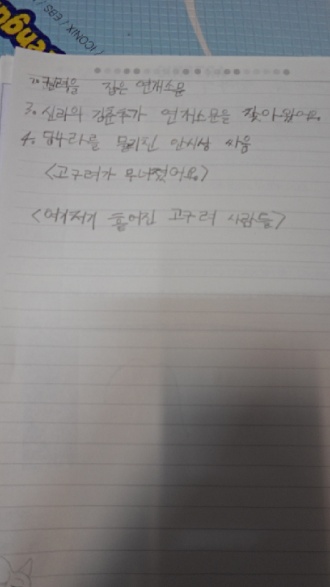 ICONIX / EBS /
2. 권력을 잡은 연개소문
3. 신라의 김춘추가 연개소문을 찾아왔어요.
4. 당나라를 물리친 안시성 싸움
<고구려가 무너졌어요>
<여기저기 흩어진 고구려 사람들>